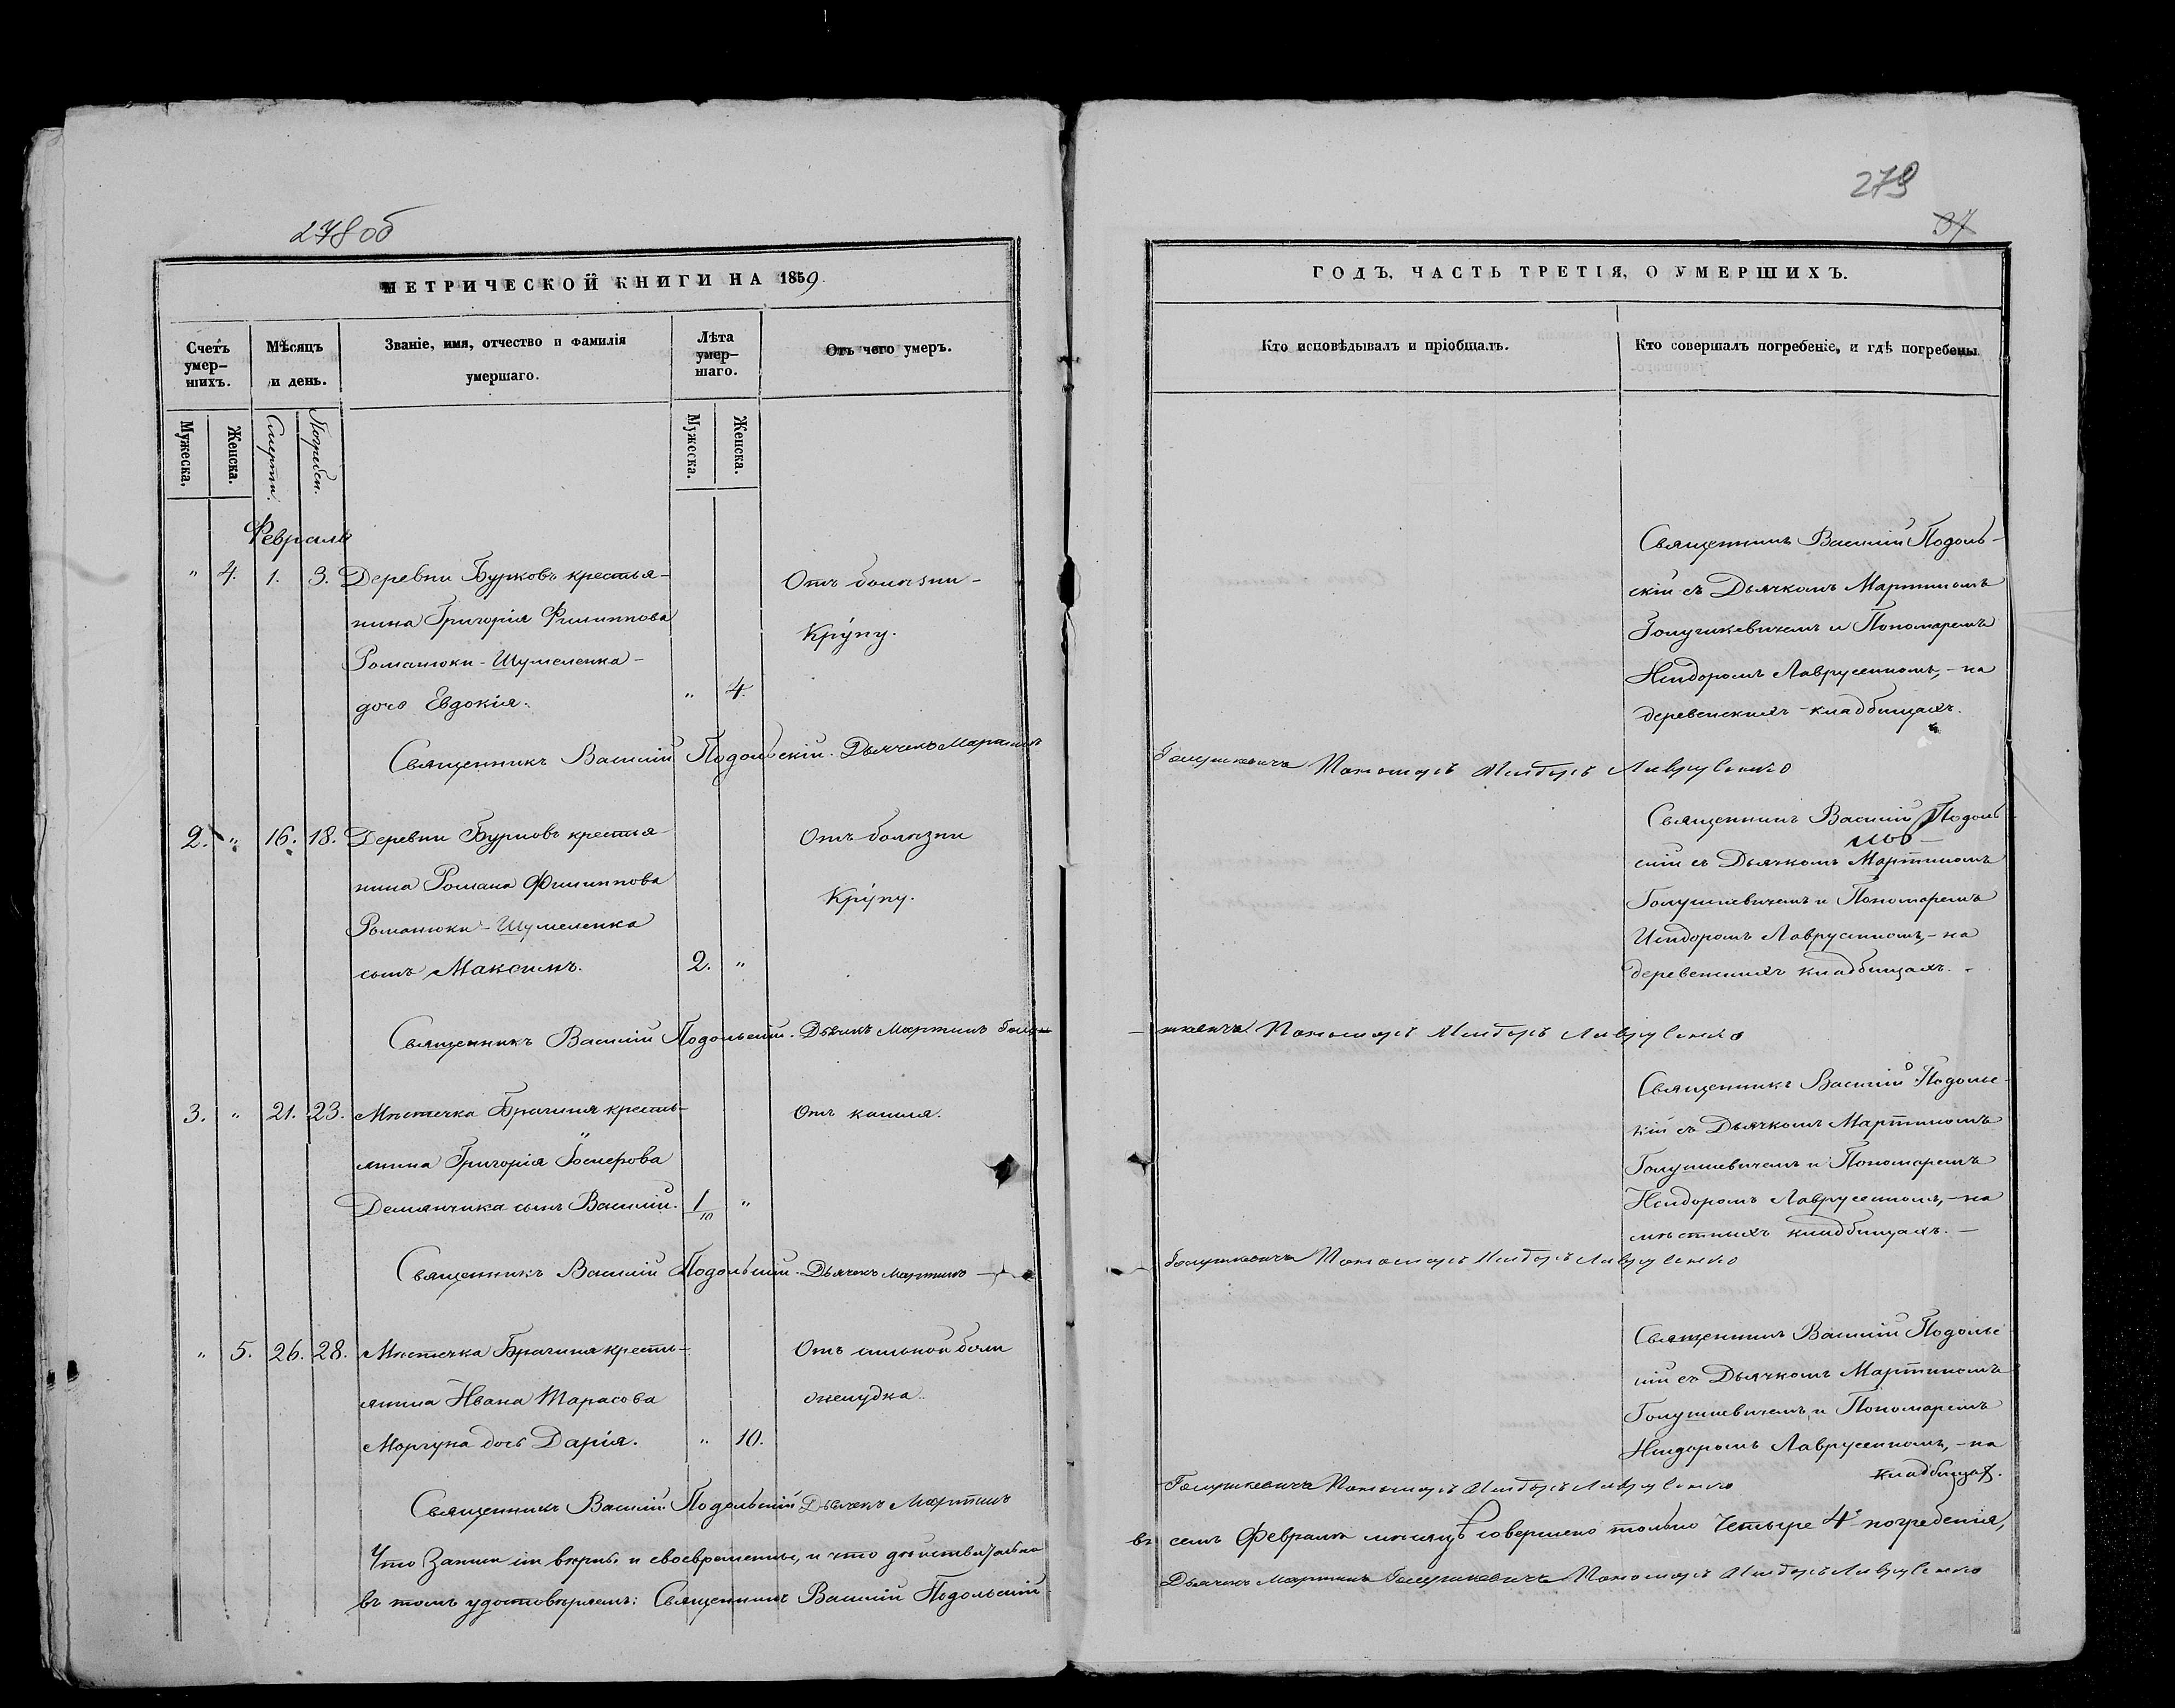 278 об
МЕТРИЧЕСКОЙ КНИГИ НА 1859
Счетъ умер–шихъ.
Мѣсяцъ и день.
Званіе, имя, отчество и фамилія умершаго.
Лѣта умер–шаго.
Отъ чего умеръ.
Мужеска.
Женска.
Смерти.
Погребен.
Мужеска.
Женска.
Февраль
" 4. 1. 3. Деревни Бурковъ крестья- Отъ болѣзни -
нина Григорія Филиппова Кру́пу.
Романюки - Шумеленка -
дочь Евдокія. " 4.
Священникъ Василій Подольскій. Дьячекъ Мартинъ
2. " 16. 18. Деревни Бурковъ крестья- Отъ болѣзни
нина Романа Филиппова Кру́пу.
Романюки - Шумеленка
сынъ Максимъ. 2. "
Священникъ Василій Подольскій. Дьячекъ Мартинъ Голуш-
3. " 21. 23. Мѣстечка Брагиня кресть- Отъ кашля.
янина Григорія
Демянчика сынъ Василій. 1/10 "
Священникъ Василій Подольскій. Дьячекъ Мартинъ
" 5. 26. 28. Мѣстечка Брагиня кресть- Отъ сильной боли
янина Ивана Тарасова желудка.
Моргуна дочь Дарія. " 10.
Священникъ Василій Подольскій Дьячекъ Мартинъ
Что записи сіи вѣрны и своевременны, и что дѣйствительно
въ томъ удостовѣряемъ: Священникъ Василій Подольскій
279
37
ГОДЪ, ЧАСТЬ ТРЕТІЯ, О УМЕРШИХЪ.
Кто исповѣдывалъ и пріобщалъ.
Кто совершалъ погребеніе, и гдѣ погребены
Священникъ Василій Подоль-
скій съ Дьячкомъ Мартиномъ
Голушкевичемъ и Пономаремъ
Исидоромъ Лаврусенкомъ, - на
деревенскихъ кладбищахъ.
Голушкевичъ Пономарь Исидоръ Лаврусенко
Священникъ Василій Подоль
скій съ Дьячкомъ Мартиномъ
Голушкевичемъ и Пономаремъ
Исидоромъ Лаврусенкомъ, - на
деревенскихъ кладбищахъ. -
- шкевичъ Пономарь Исидоръ Лаврусенко
Священникъ Василій Подольс-
кій съ Дьячкомъ Мартиномъ
Голушкевичемъ и Пономаремъ
Исидоромъ Лаврусенкомъ, - на
мѣстныхъ кладбищахъ. -
Голушкевичъ Пономарь Исидоръ Лаврусенко
Священникъ Василій Подольс
кій съ Дьячкомъ Мартиномъ
Голушкевичемъ и Пономаремъ
Исидоромъ Лаврусенкомъ, - на
кладбищах.
Голушкевичъ Пономарь Исидоръ Лаврусенко
въ семъ Февралѣ мѣсяцѣ совершено только четыре 4 погребенія,
Дьячекъ Мартинъ Голушкевичъ Пономарь Исидоръ Лаврусенко